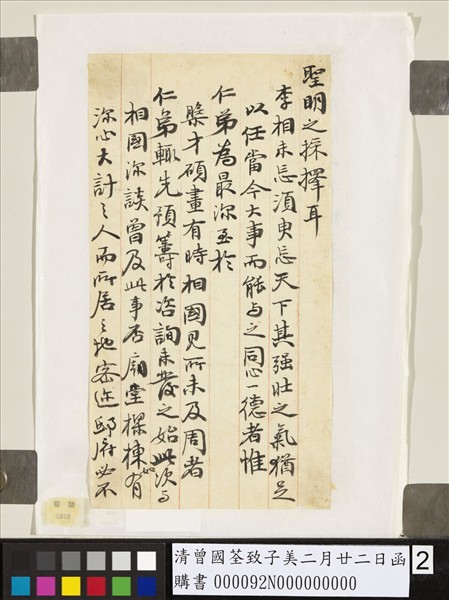 聖明之採擇耳
李相未忍須臾忘天下其强壯之氣猶足
以任當今大事而能与之同心一德者惟
仁弟為最深至於
槃才碩畫有時相國見所未及周者
仁弟輒先預籌於咨詢未發之始此次与
相國深談曾及此事否廟堂樑棟如有
深心大計之人而所居之地密迩邸府必不
清曾國荃致子美二月廿二日函
購書 000092N000000000
2